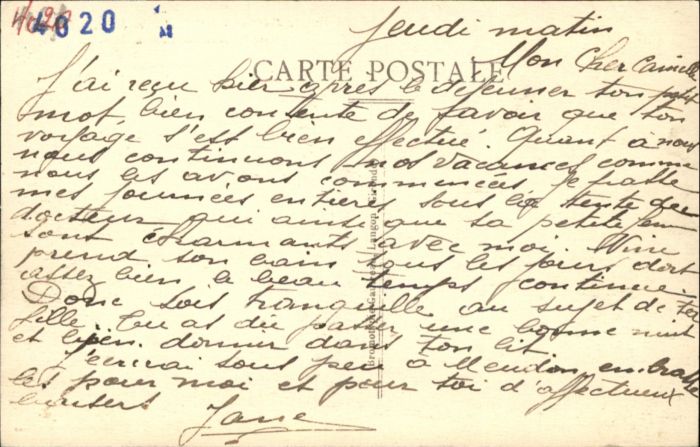 4020
Jeudi matin
Mon Cher Camille
CARTE POSTALE
J'ai reçu hier après le dejeuner ton petit
mot, bien contente de savoir que ton
voyage s'est bien effectué. Quant à nous
nous continuons nos vacances comme
nous les avons commencées, je passe
mes journées entieres sous la tente du
docteur qui ainsi que sa petite fem
sont charmants avec moi.
prend son bain tous les jours, dort
assez bien le beau temps continue.
Donc sois tranquille au sujet de ta
fille. Tu as dû passer une bonne nuit
et bien dormir dans ton lit
J'ecrirai sous peu à Meudon, embrasse
les pour moi et pour toi d'affectueux
baisers Jane